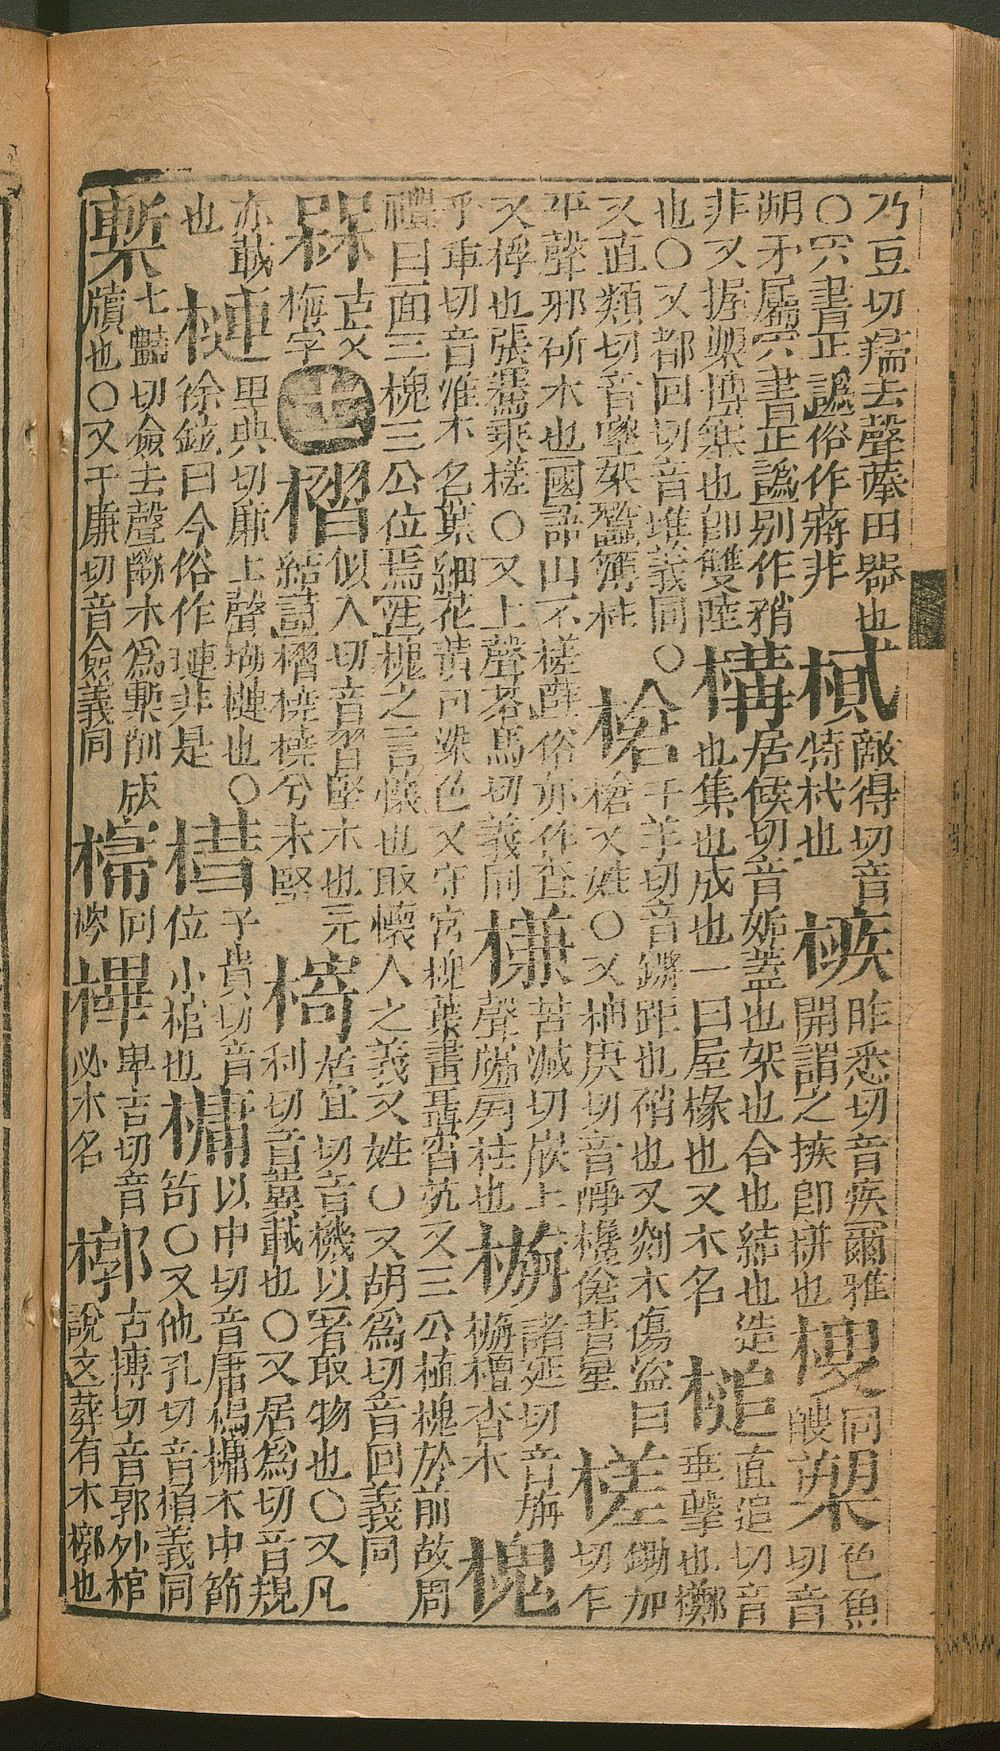 乃豆切獳去聲薅田器也〇六書正譌俗作耨非 敵得切音特杙也 槉昨悉切音疾爾雅開謂之槉即栟也 㮴同艘 槊色魚切音
朔矛屬六書正譌別作矟非又握槊博塞也即雙陸 構居候切音姤蓋也架也合也結也造也集也成也一曰屋椽也又木名 槌直追切音垂擊也擲
也〇又都回切音堆義同〇又直類切音墜架蠶簿柱 槍千羊切音鏘距也矟也又剡木傷盜曰槍又姓〇又抽庚切音欃槍彗星 槎鋤加切乍
平聲邪斫木也國語山不槎蘖俗亦作查又桴也張騫乘槎〇又上聲茶馬切義同 槏苦減切嵌上聲牖旁柱也 諸延切音旃檀香木 槐
乎乖切音淮木名葉細花黃可染色又守宮槐葉晝聶宵炕又三公植槐於前故周禮曰面三槐三公位焉注槐之言懷也取懷人之義又姓〇又胡爲切音回義同
槑古文梅字 十一 槢似入切音習堅木也元結詩槢橈橈兮未堅 居宜切音機以箸取物也〇又凡利切音異載也〇又居爲切音規
亦戴也 槤里典切廉上聲瑚槤也〇徐鉉曰今俗作璉非是 子貴切音位小棺也 槦以中切音庸槦木中箭笴〇又他孔切音桶義同
槧七豔切僉去聲斷木爲槧削版牘也〇又千廉切音僉義同 槣同梣 㮿卑吉切音必木名 槨古博切音郭外棺說文葬有木槨也